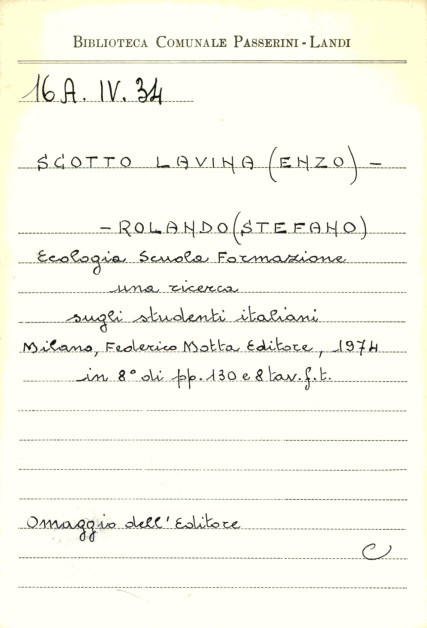 BIBLIOTECA COMUNALE PASSERINI - LANDI
16 A. IV. 34
SCOTTO LAVINA (ENZO) -
- ROLANDO (STEFANO)
Ecologia Scuola Formazione
una ricerca
sugli studenti italiani
Milano, Federico Motta Editore, 1974
in 8° di pp. 130 e 8 tav. f. t.
Omaggio dell'Editore
C